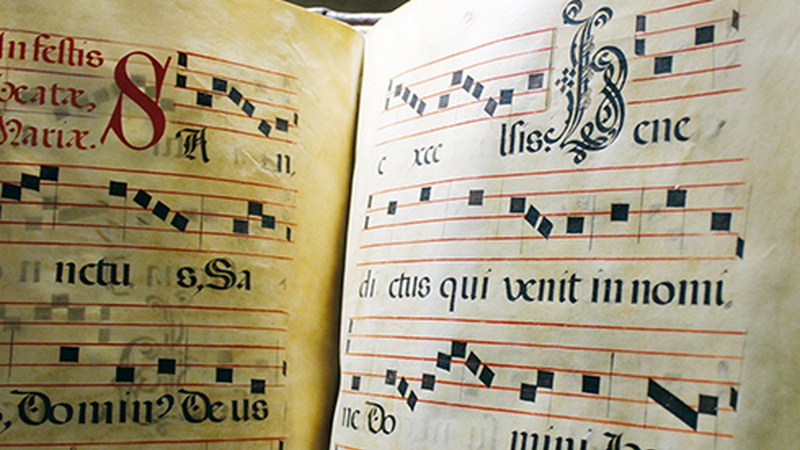 In festis
Beatæ,
Mariæ.
SA n,
nctu s, Sa
, Dominꝰ Deus
e xce lsis. Bene
di ctus qui venit in nomi,
ne Do
mini